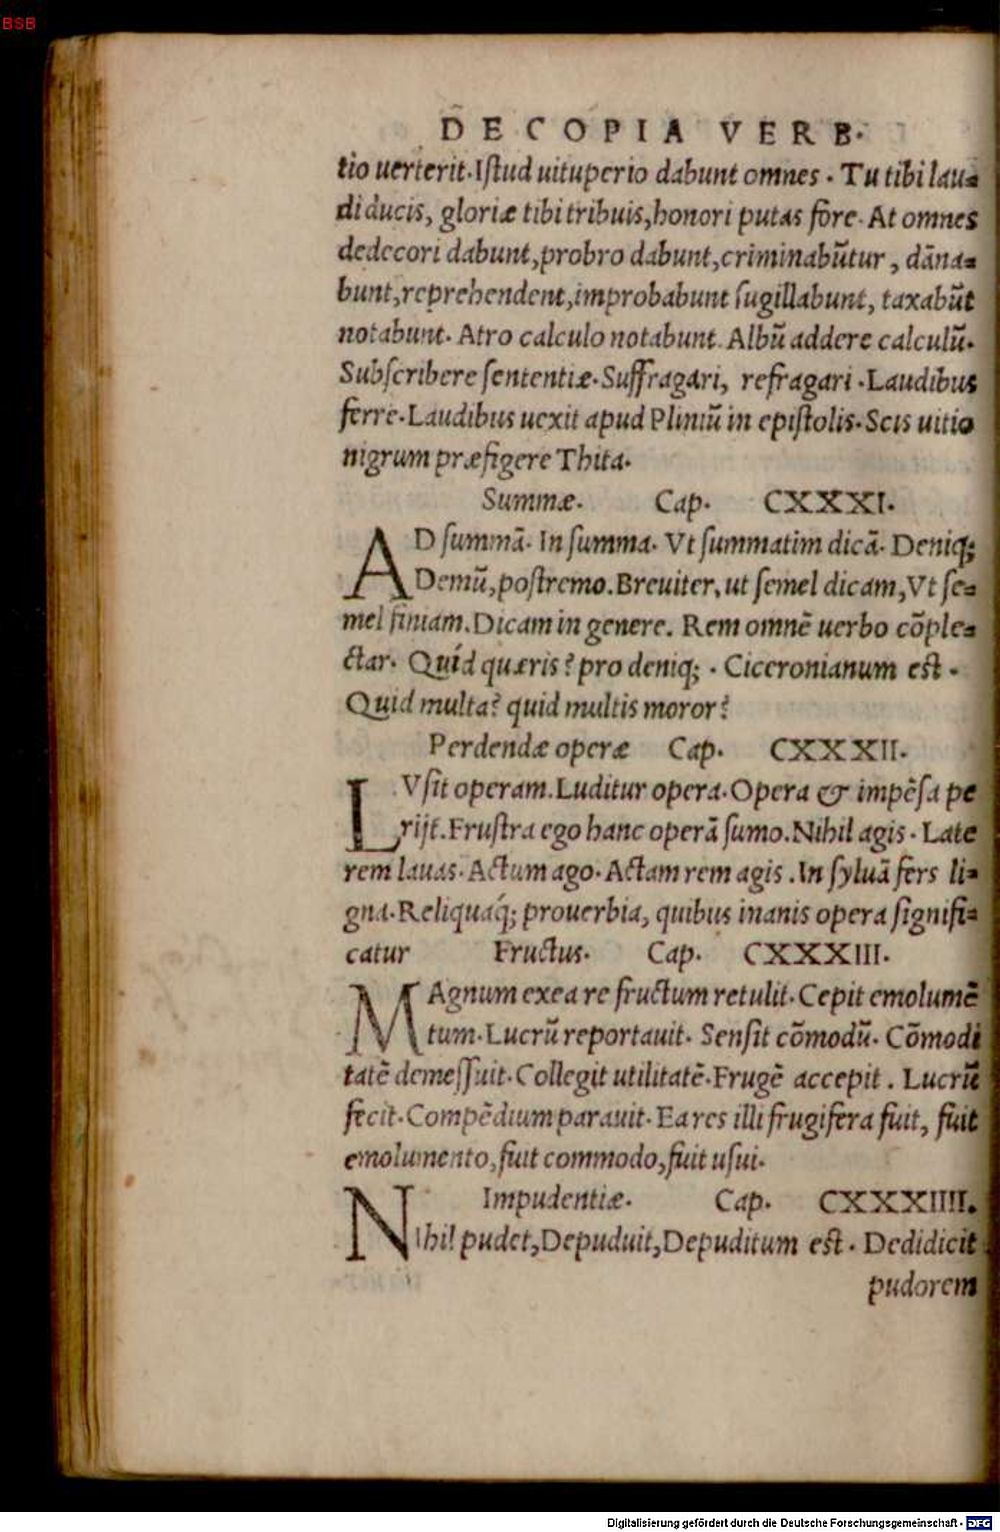 BSB
DE COPIA VERB.
tio uerterit. Iſtud uituperio dabunt omnes. Tu tibi lau⸗
di ducis, gloriæ tibi tribuis, honori putas fore. At omnes
dedecori dabunt, probro dabunt, criminabũtur, dãna⸗
bunt, reprehendent, improbabunt ſugillabunt, taxabũt
notabunt. Atro calculo notabunt. Albũ addere calculũ.
Subſcribere ſententiæ. Suffragari, refragari. Laudibus
ferre. Laudibus uexit apud Pliniũ in epiſtolis. Scis uitio
nigrum præfigere Thita.
Summæ. Cap. CXXXI.
AD ſummã. In ſumma. Vt ſummatim dicã. Deniq;
Demũ, poſtremo. Breuiter, ut ſemel dicam, Vt ſe⸗
mel finiam. Dicam in genere. Rem omnẽ uerbo cõple⸗
ctar. Quíd quæris? pro deniq;. Ciceronianum eſt.
Quid multa? quid multis moror?
Perdendæ operæ Cap. CXXXII.
LVſit operam. Luditur opera. Opera & impẽſa pe
rijt. Fruſtra ego hanc operã ſumo. Nihil agis. Late
rem lauas. Actum ago. Actam rem agis. In ſyluã fers li⸗
gna. Reliquaq́; prouerbia, quibus inanis opera ſignifi⸗
catur Fructus. Cap. CXXXIII.
MAgnum ex ea re fructum retulit. Cepit emolumẽ
tum. Lucrũ reportauit. Senſit cõmodũ. Cõmodi
tatẽ demeſſuit. Collegit utilitatẽ. Frugẽ accepit. Lucrũ
fecit. Compẽdium parauit. Ea res illi frugifera fuit, fuit
emolumento, fuit commodo, fuit uſui.
Impudentiæ. Cap. CXXXIIII.
NIhil pudet, Depuduit, Depuditum eſt. Dedidicit
pudorem
Digitalisierung gefördert durch die Deutsche Forschungsgemeinschaft - DFG